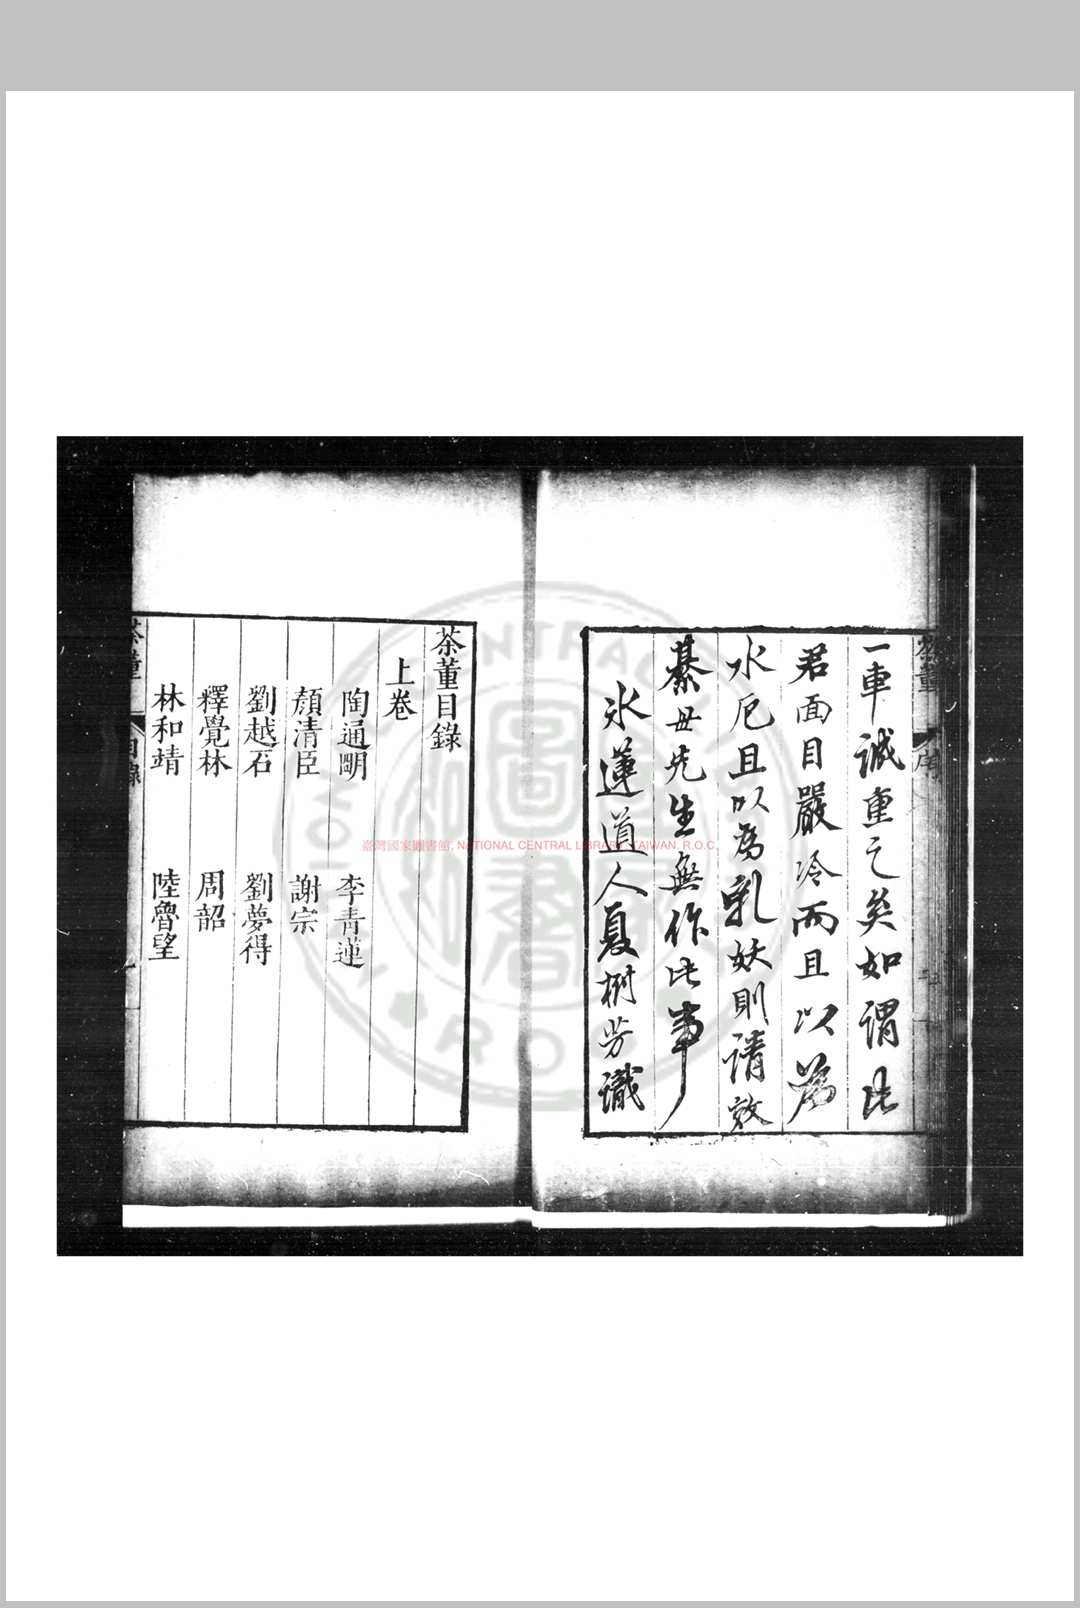 一車誠重之矣如謂此
君面目嚴冷而且以為
水厄且以為乳妖則請效
綦毋先生無作此事
冰蓮道人夏樹芳識
茶董目錄
上卷
陶通明 李青蓮
顏清臣 謝宗
劉越石 劉夢得
釋覺林 周韶
林和靖 陸魯望
臺灣國家圖書館, NATIONAL CENTRAL LIBRARY, TAIWAN, R.O.C.